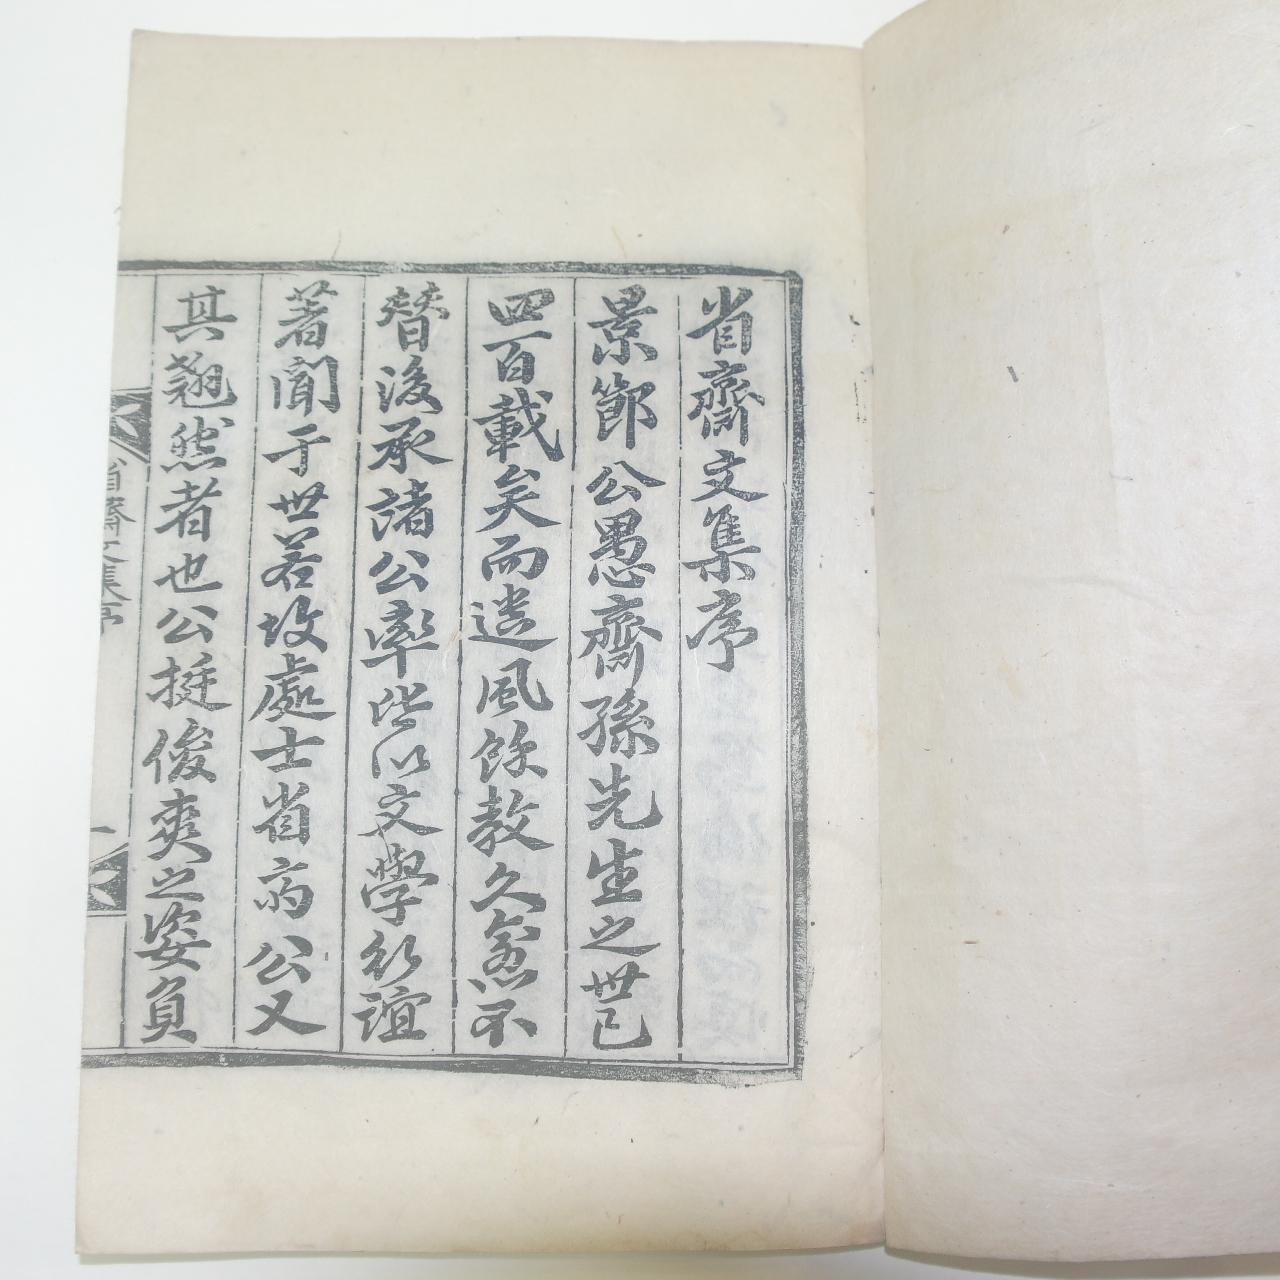 省齋文集序
景節公愚齋孫先生之世已
四百載矣而遺風餘教久愈不
替後承諸公率皆以文學行誼
著聞于世若故處士省而公又
其翹然者也公挺俊爽之姿負
省齋文集序
一